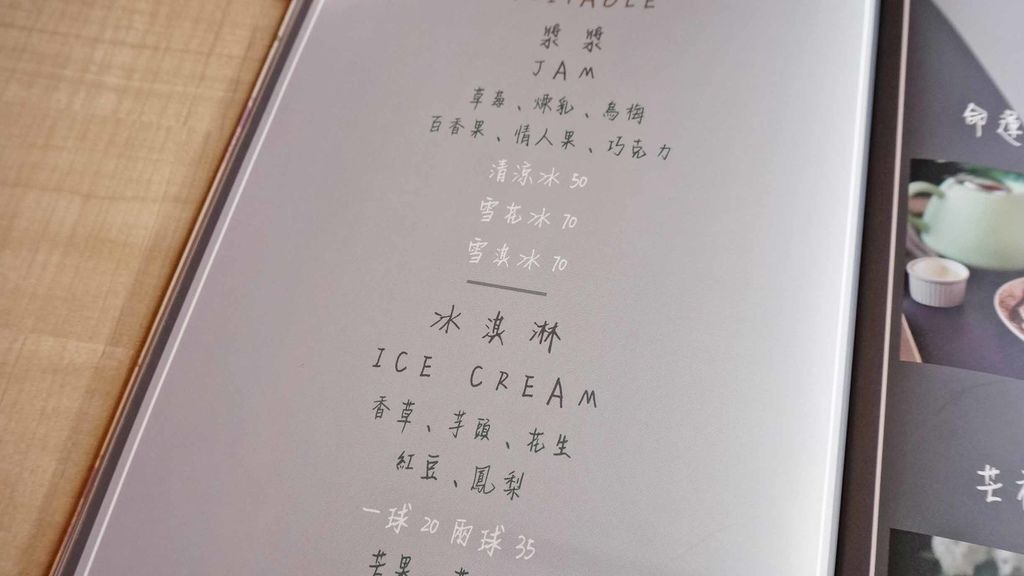 漿漿
JAM
草莓、煉乳、烏梅
百香果、情人果、巧克力
清涼冰 50
雪花冰 70
雪淇冰 70
冰淇淋
ICE CREAM
香草、芋頭、花生
紅豆、鳳梨
一球 20 兩球 35
芒果、
命運
芒